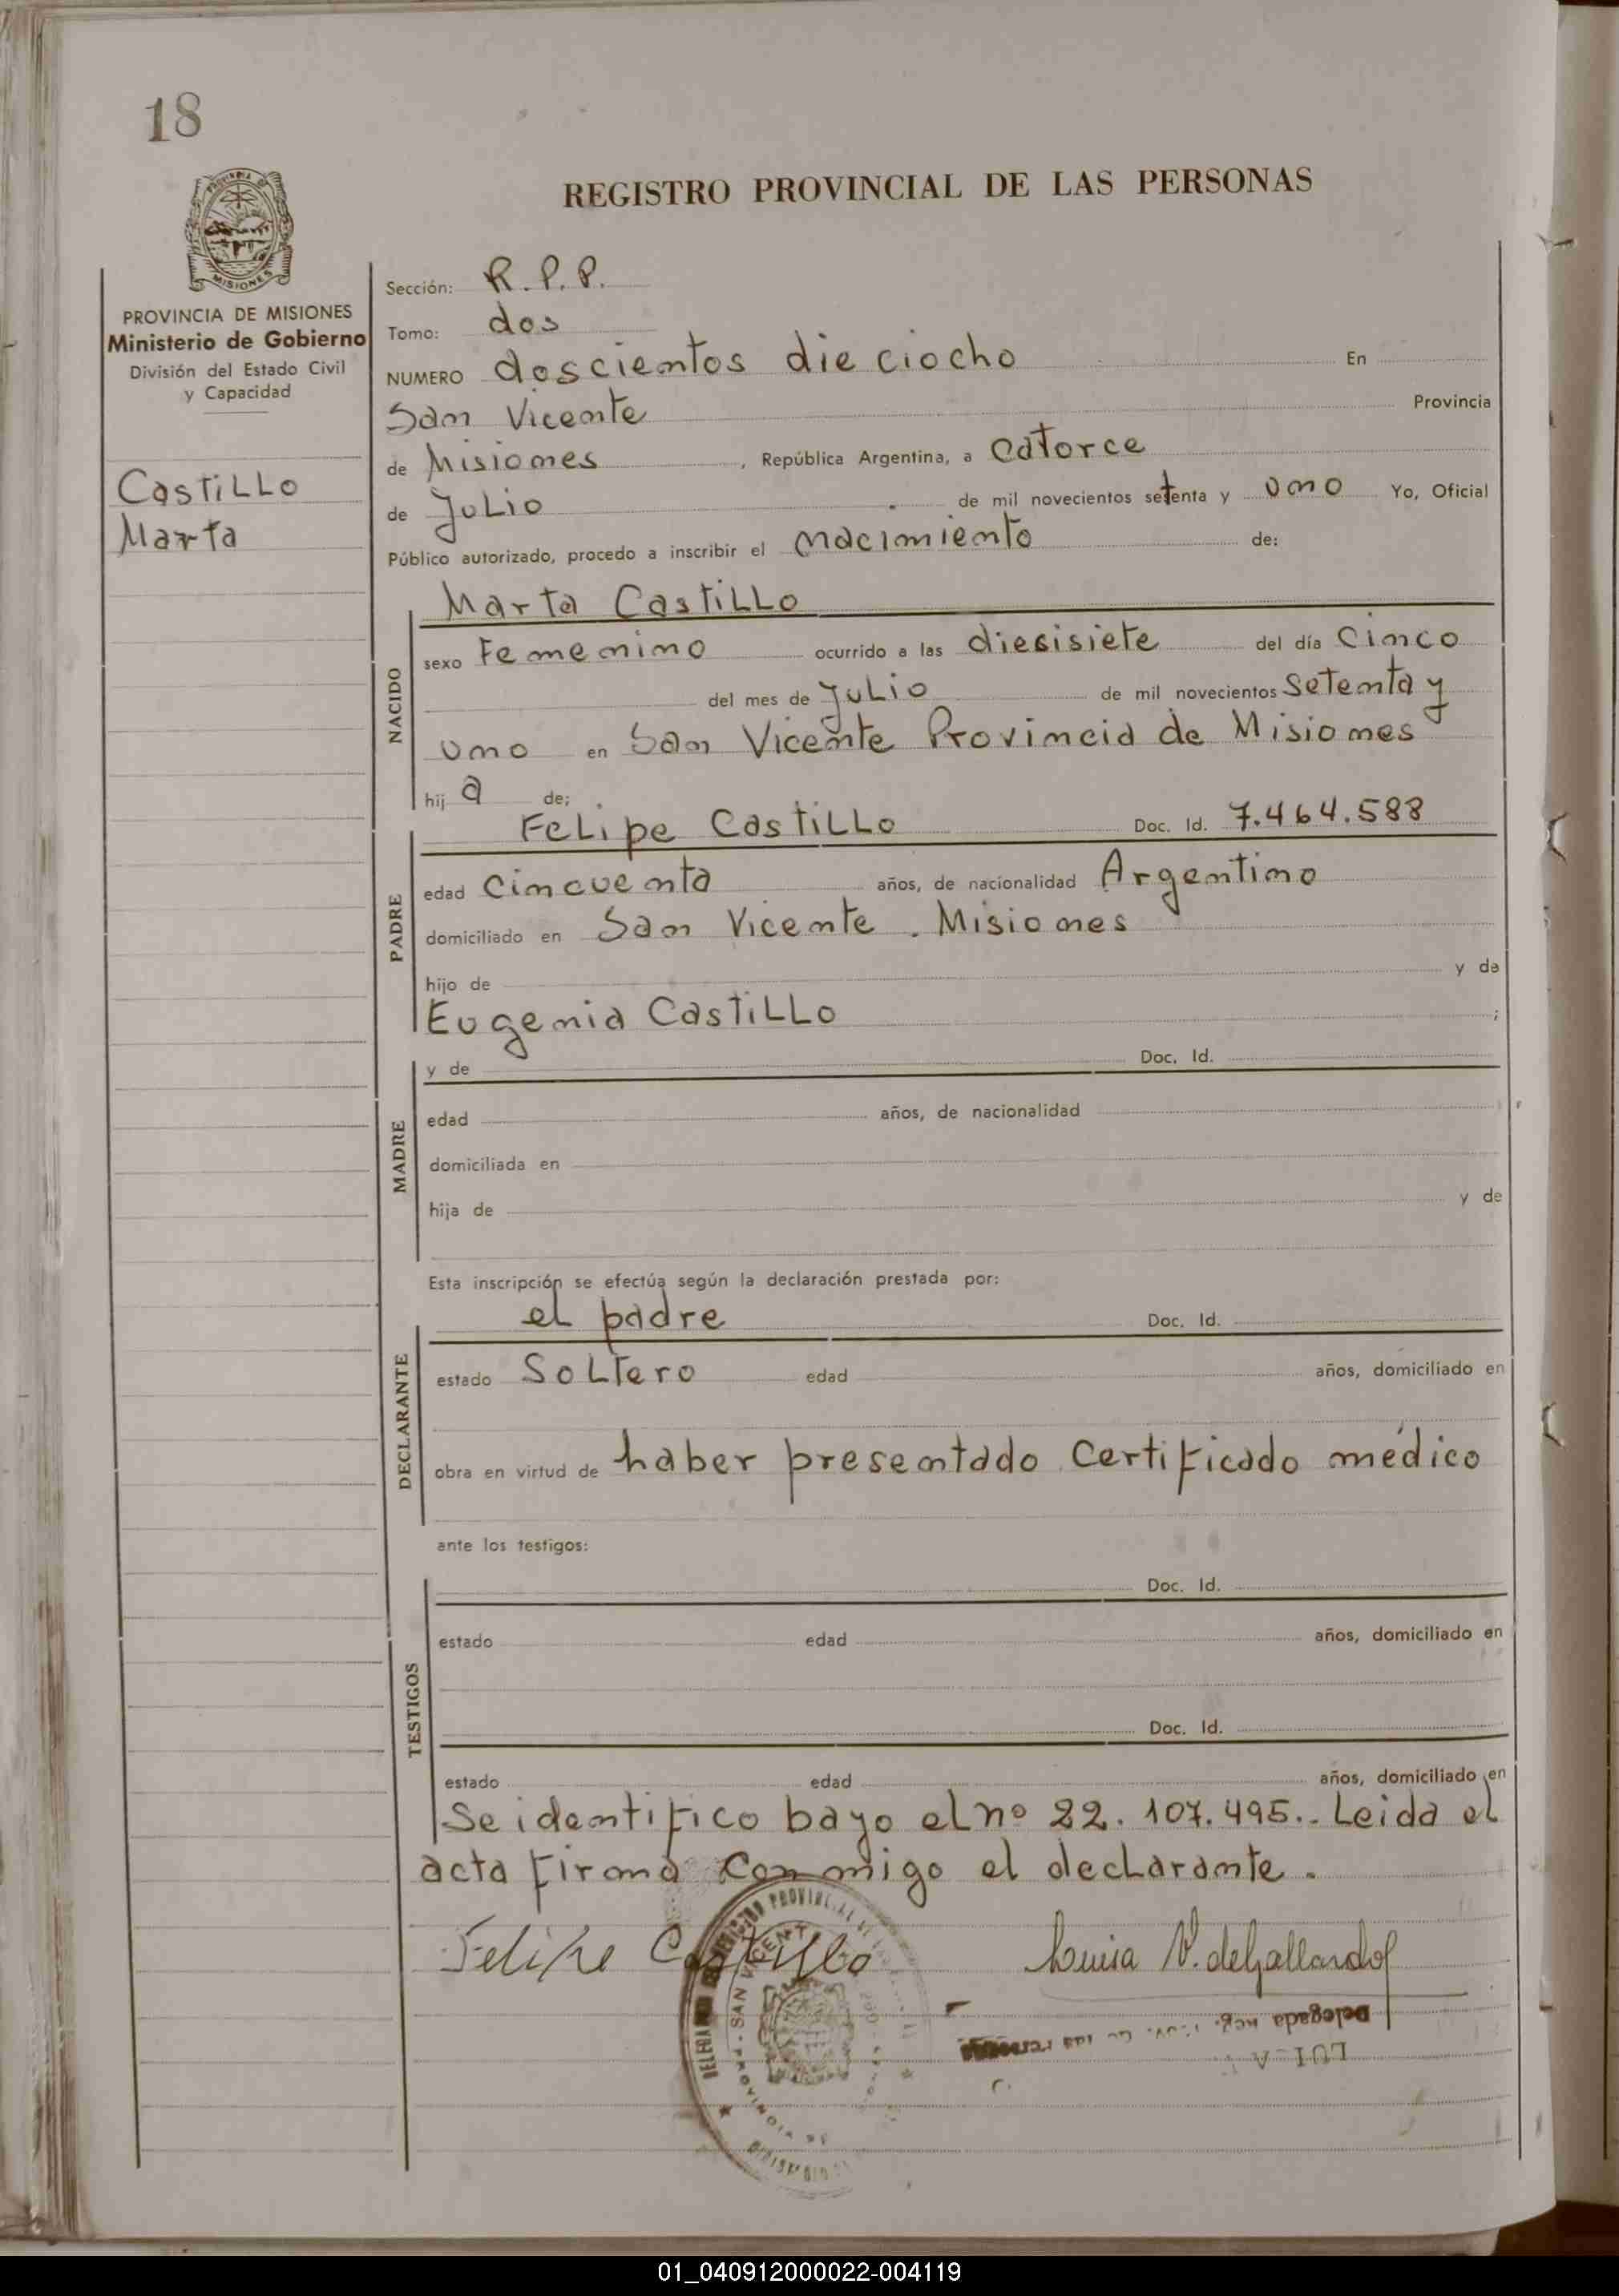 18
REGISTRO PROVINCIAL DE LAS PERSONAS
MISIONES
PROVINCIA DE MISIONES
Ministerio de Gobierno
División del Estado Civil
y Capacidad
Castillo
Marta
Sección: R.P.P.
Tomo: dos
NUMERO doscientos die ciocho En
San Vicente Provincia
de Misiones , República Argentina, a Catorce
de Julio de mil novecientos setenta y uno Yo, Oficial
Público autorizado, procedo a inscribir el nacimiento de:
NACIDO
Marta Castillo
sexo Femenino ocurrido a las diesisiete del día Cinco
del mes de Julio de mil novecientos Setenta y
uno en San Vicente Provincia de Misiones
hij a de;
PADRE
Felipe Castillo Doc. Id. 7.464.588
edad Cincuenta años, de nacionalidad Argentino
domiciliado en San Vicente . Misiones
hijo de y de
Eugenia Castillo ;
MADRE
y de Doc. Id.
edad años, de nacionalidad
domiciliada en
hija de y de
Esta inscripción se efectúa según la declaración prestada por:
DECLARANTE
el padre Doc. Id.
estado Soltero edad años, domiciliado en
obra en virtud de haber presentado Certificado médico
ante los testigos:
TESTIGOS
Doc. Id.
estado edad años, domiciliado en
Doc. Id.
estado edad años, domiciliado en
Se identifico bajo el nº 22.107.495.. Leida el
acta firma conmigo el declarante.
Felipe Castillo Luisa V. de Gallardo
Delegada Reg. Prov. de las Personas
SAN VICENTE
01_040912000022-004119